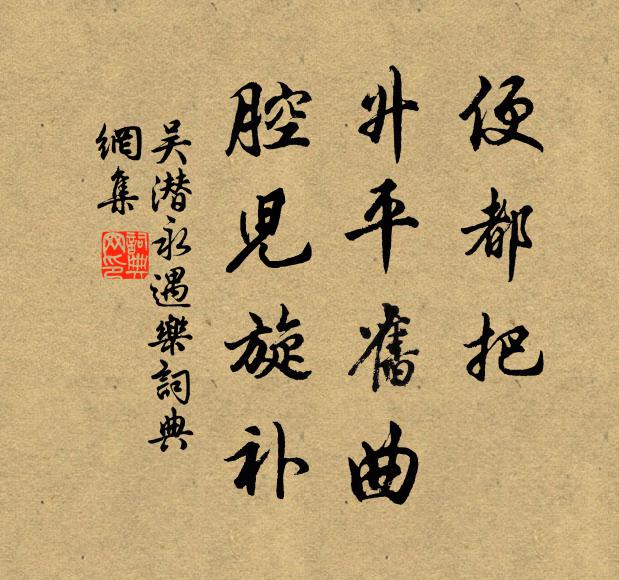 便都把
升平舊曲
腔兒旋补
吴潜永遇樂詞典
網集
詞典網印